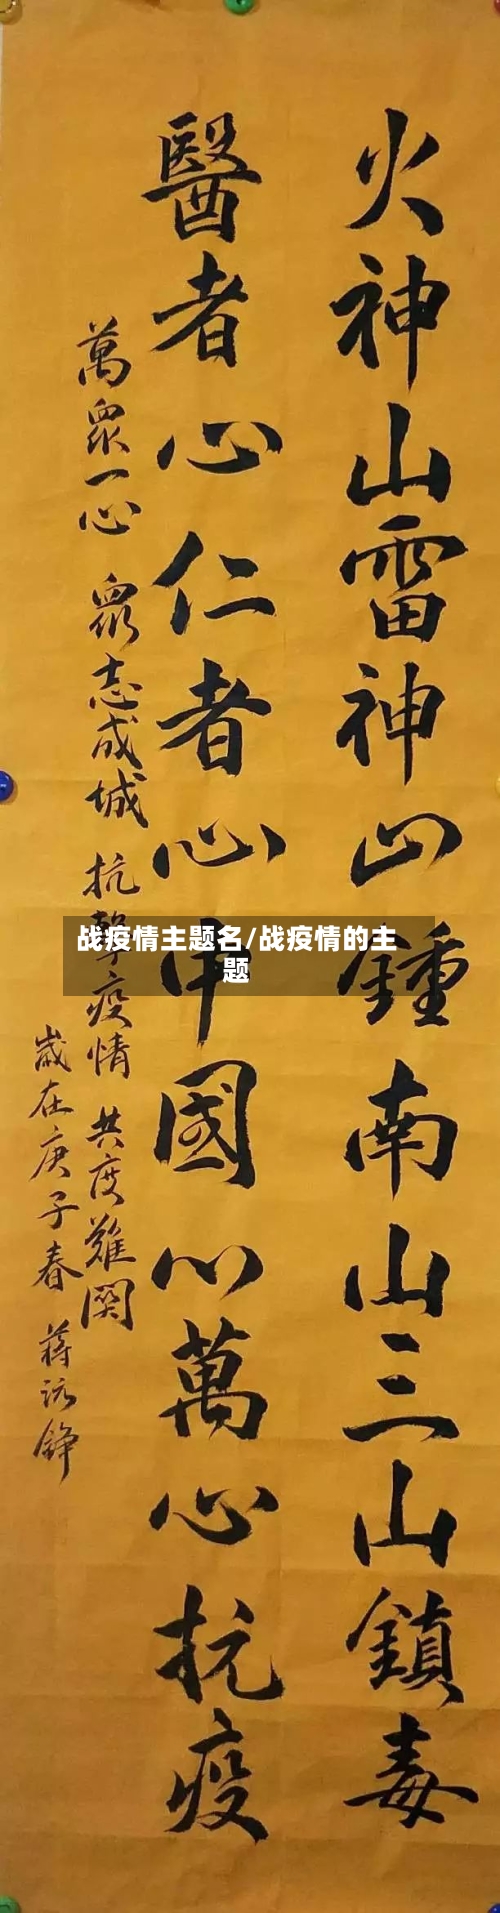 火神山雷神山鍾南山三山鎮毒
醫者心仁者心中國心萬心抗疫
萬眾一心 眾志成城 抗擊疫情 共度難関
歲在庚子春 蔣
战疫情主题名/战疫情的主
题